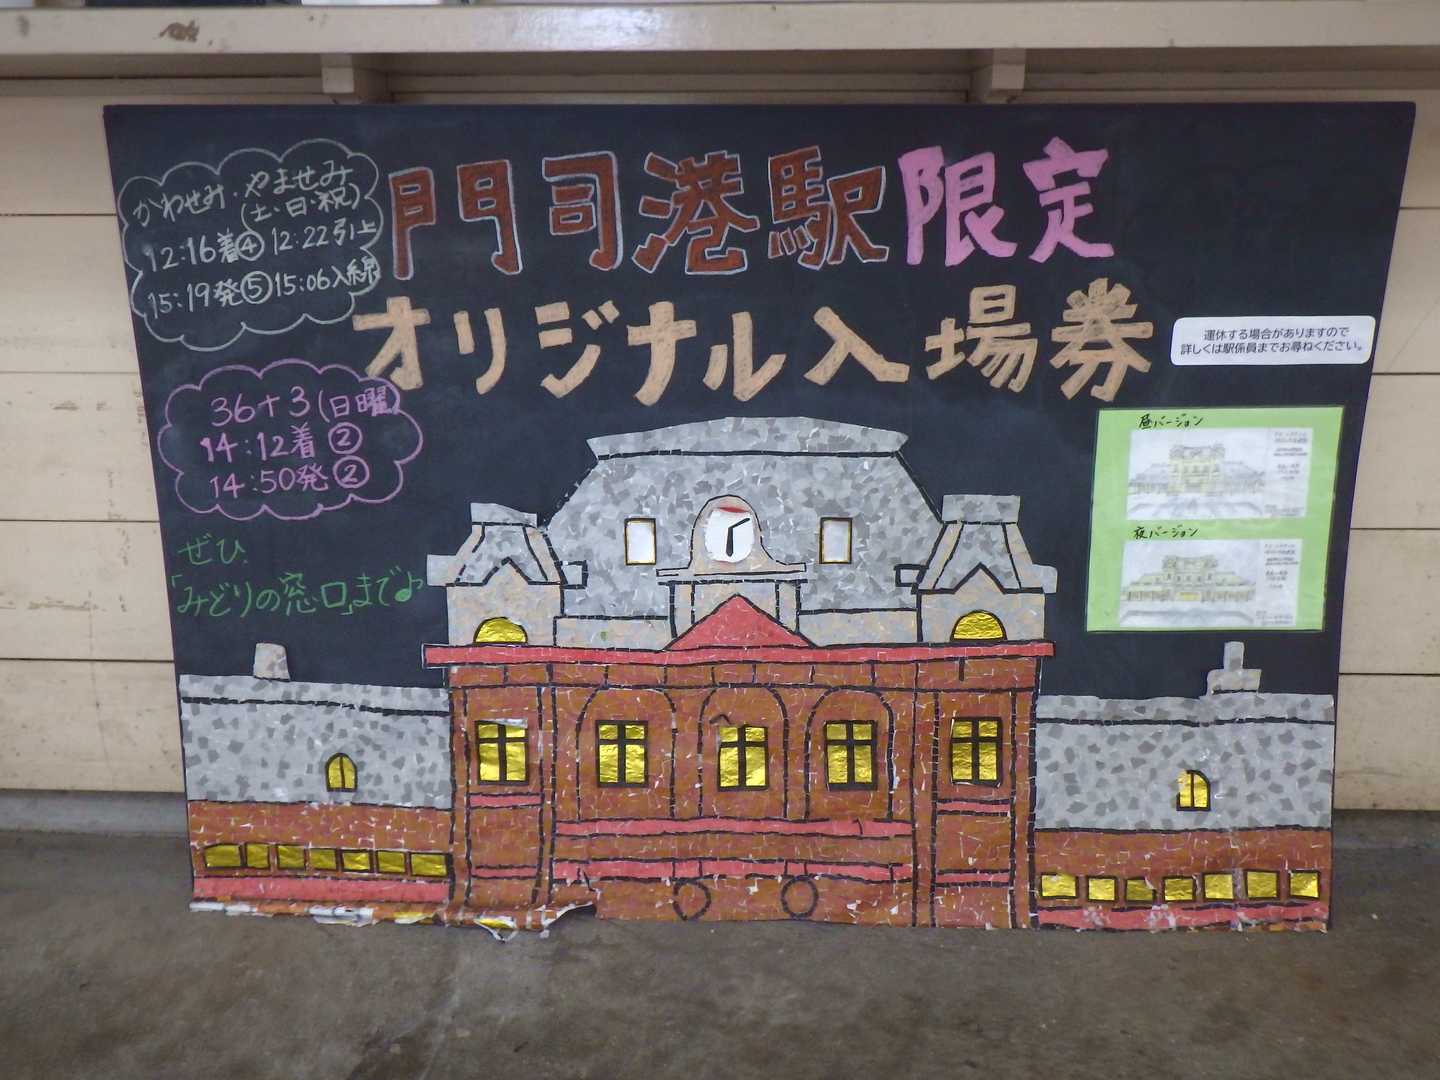 かわせみ・やませみ
(土・日・祝)
12:16着④ 12:22引上
15:19発⑤ 15:06入線
門司港駅限定
オリジナル入場券
運休する場合がありますので
詳しくは駅係員までお尋ねください。
36+3(日曜)
14:12着②
14:50発②
ぜひ、
「みどりの窓口」まで♪
昼バージョン
夜バージョン